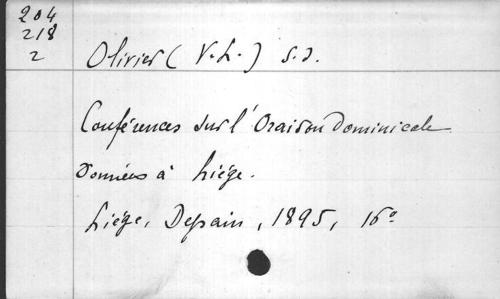 204
218
2
Olivier ( V.L. ) s.j.
Conférences sur l'Oraison Dominicale
données à Liége.
Liége, Dessain, 1895, 16º